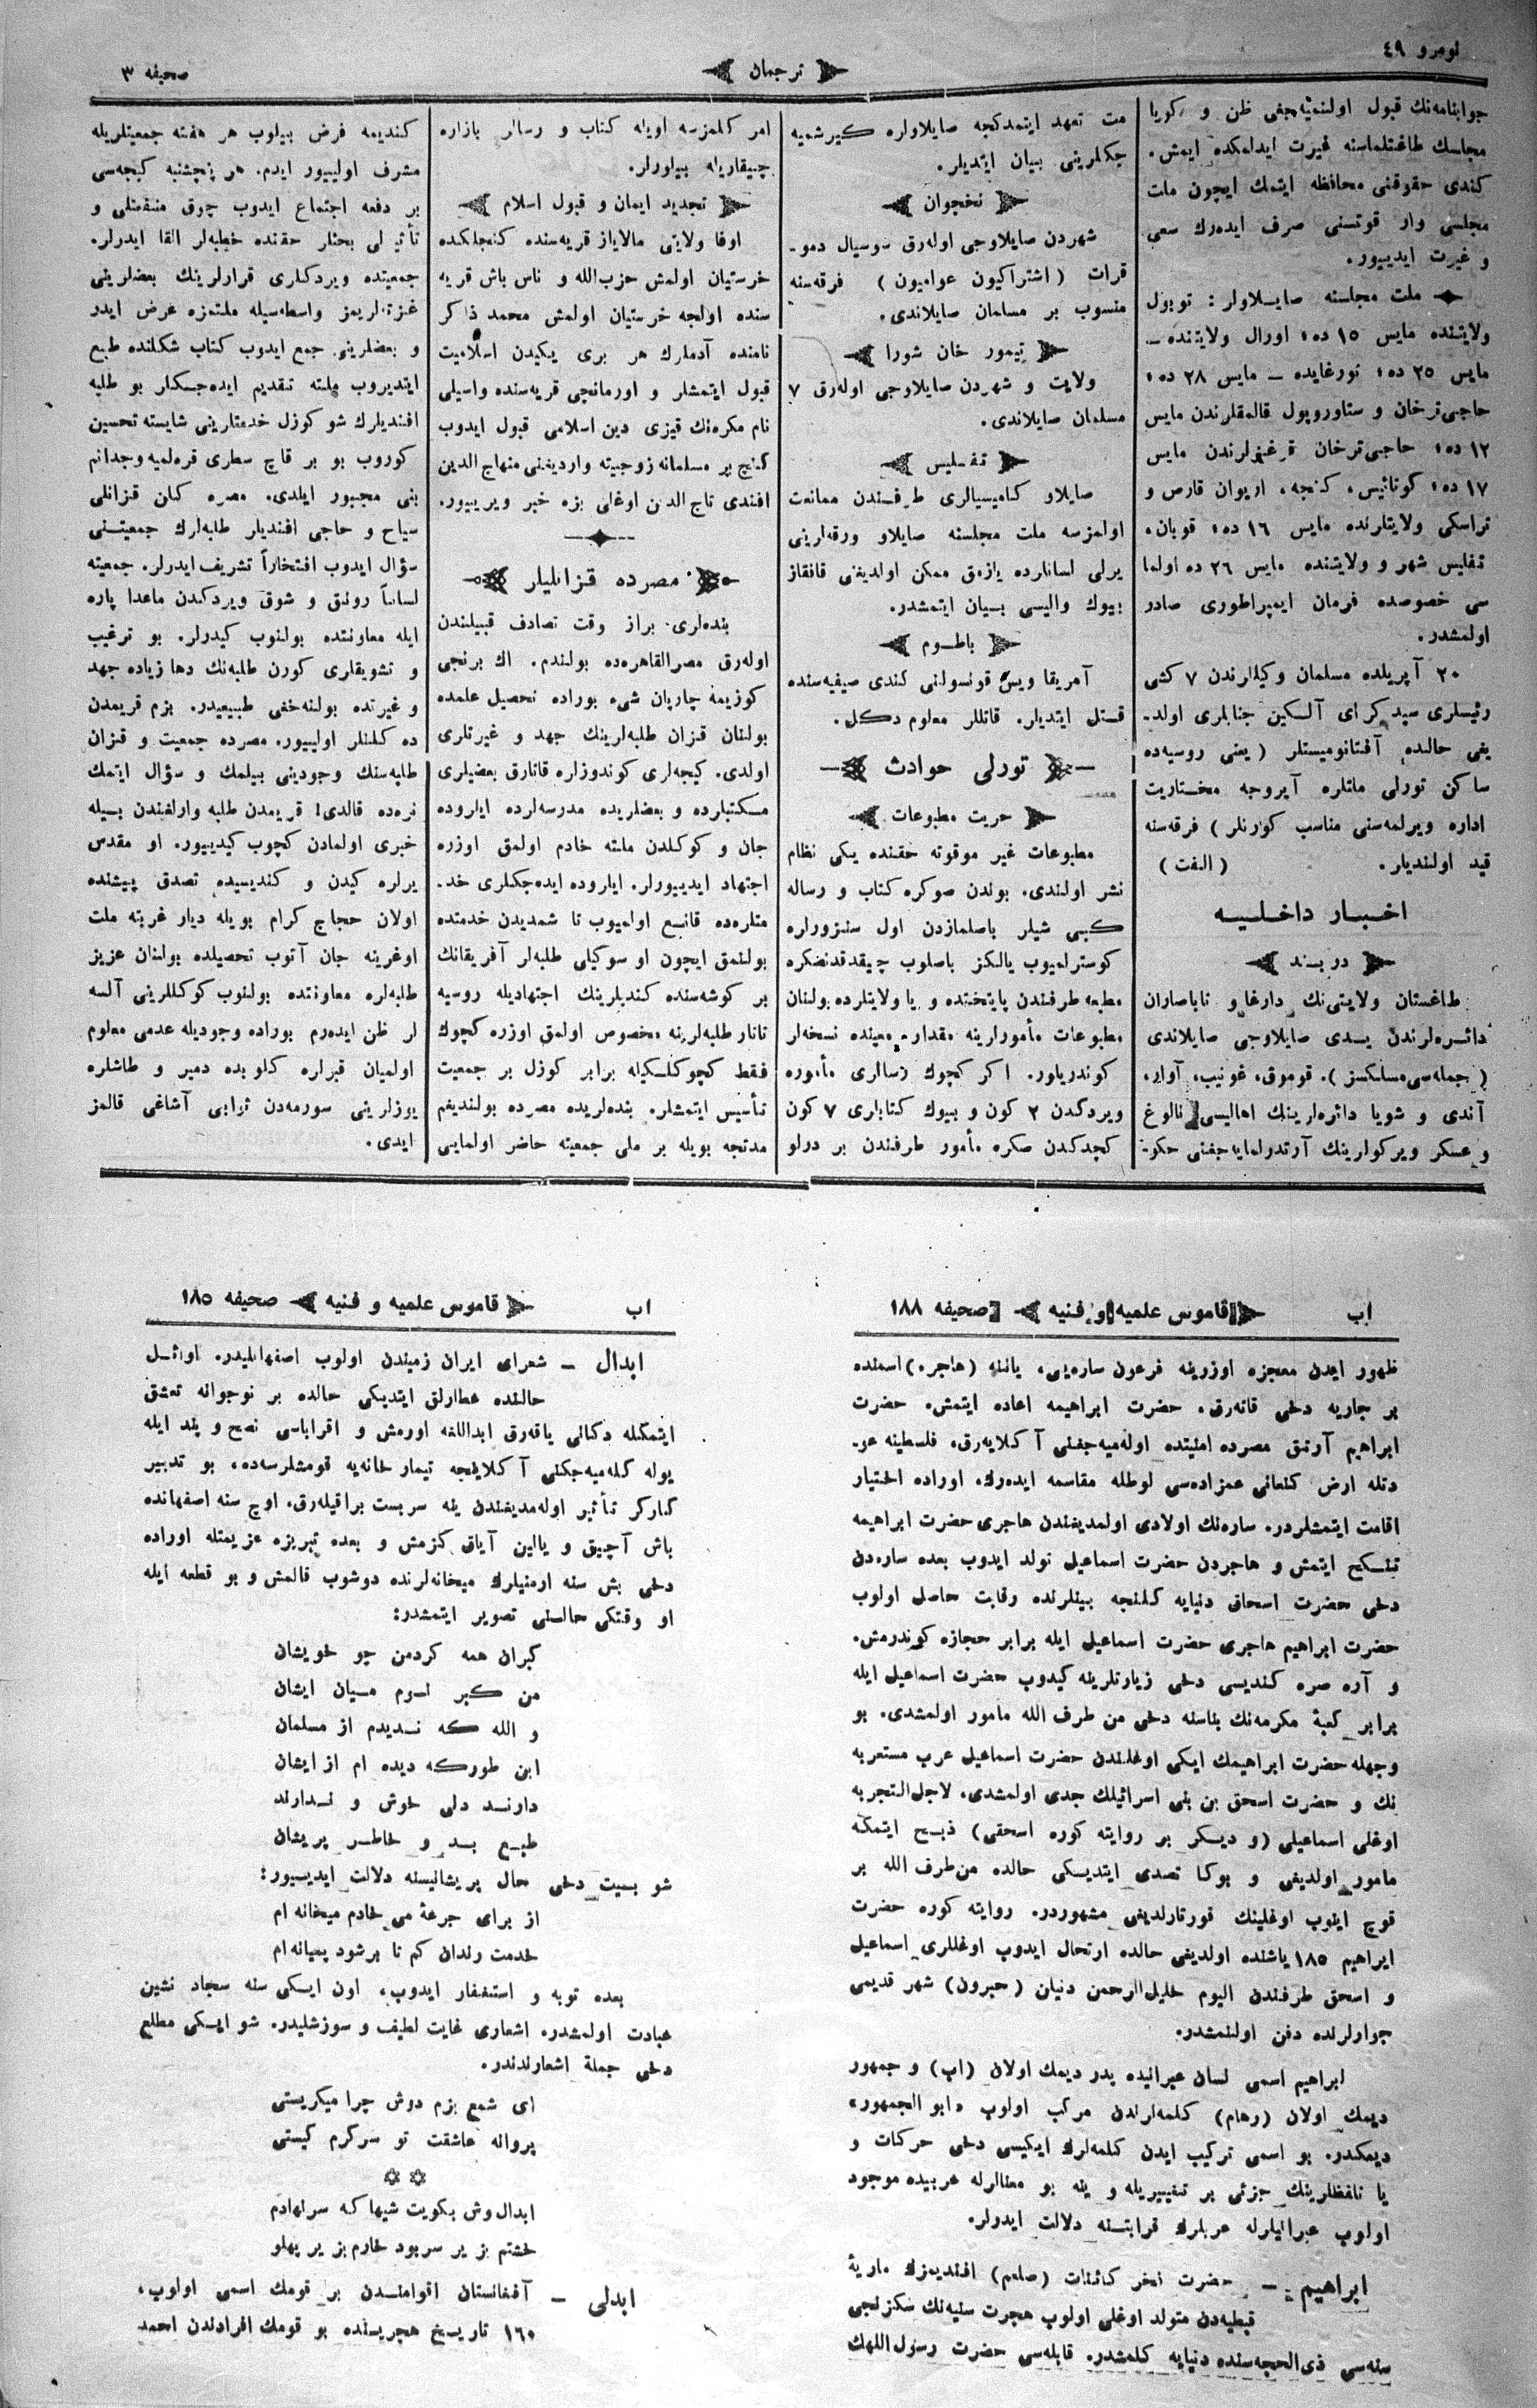 نومرو ٤٩
ترجمان
صحيفه ٣
جوابنامه‌نك قبول اولنميه‌جغى ظن و كويا
مجلسك طاغتلماسنه غيرت ايدلمكده ايمش.
كندى حقوقنى محافظه ايتمك ايچون ملت
مجلسى وار قوتنى صرف ايده‌رك سعى
و غيرت ايدييور.
ملت مجلسنه صايلاولر: توبول
ولايتنده مايس ١٥ ده؛ اورال ولايتنده —
مايس ٢٥ ده؛ تورغايده — مايس ٢٨ ده؛
حاجى‌ترخان و ستاوروپول قالمقلرندن مايس
١٢ ده؛ حاجى‌ترخان قرغزلرندن مايس
١٧ ده؛ كوتائيس، كنجه، اريوان قارص و
تراسكى ولايتلرنده مايس ١٦ ده؛ قوبان،
تفليس شهر و ولايتنده مايس ٢٦ ده اولما
سى خصوصده فرمان ايمپراطورى صادر
اولمشدر.
٢٠ آپريلده مسلمان وكيللرندن ٧ كشى
رئيسلرى سيد كراى آلكين جنابلرى اولد-
يغى حالده آفتانوميستلر (يعنى روسيه‌ده
ساكن تورلى ملتلره آيروجه مختاريت
اداره ويرلمه‌سنى مناسب كورنلر) فرقه‌سنه
قيد اولنديلر. (الفت)
اخبار داخليه
دربند
طاغستان ولايتى‌نك دارغا و تاباصاران
دائره‌لرندن يدى صايلاوجى صايلاندى
(جمله‌سى مسلكسز). قوموق، غونيب، آوار،
آندى و شوبا دائره‌لرينك اهاليسى نالوغ
و عسكر ويركولرينك آرتدرلمايه‌جغنى حكو-
مت تعهد ايتمدكجه صايلاولره كيرشميه
جكلرينى بيان ايتديلر.
نخجوان
شهردن صايلاوجى اوله‌رق سوسيال دمو-
قرات (اشتراكيون عواميون) فرقه‌سنه
منسوب بر مسلمان صايلاندى.
تيمور خان شورا
ولايت و شهردن صايلاوجى اوله‌رق ٧
مسلمان صايلاندى.
تفليس
صايلاو كاميسيالرى طرفندن ممانعت
اولمزسه ملت مجلسنه صايلاو ورقه‌لرينى
يرلى لسانلرده يازمق ممكن اولديغنى قافقاز
بيوك واليسى بيان ايتمشدر.
باطوم
آمريقا ويس قونسولنى كندى صيفيه‌سنده
قتل ايتديلر. قاتللر معلوم دكل.
تورلى حوادث
حريت مطبوعات
مطبوعات غير موقوته حقنده يكى نظام
نشر اولندى. بوندن صوكره كتاب و رساله
كبى شيلر باصلمازدن اول سنزورلره
كوسترلميوب يالكز باصلوب چيقدقدنصكره
مطبعه طرفندن پايتختده و يا ولايتلرده بولنان
مطبوعات مأمورلرينه مقدار معينده نسخه‌لر
كوندريلور. اكر كچوك رساله‌لرى مأموره
ويردكدن ٢ كون و بيوك كتابلرى ٧ كون
كچدكدن صكره مأمور طرفندن بر درلو
امر كلمزسه اويله كتاب و رساله‌لر بازاره
چيقاريله بيلورلر.
تجديد ايمان و قبول اسلام
اوفا ولايتى مالاياز قريه‌سنده كنجلكده
خرستيان اولمش حزب‌الله و ناس باش قريه
سنده اولجه خرستيان اولمش محمد ذاكر
نامنده آدملرك هر برى يكيدن اسلاميت
قبول ايتمشلر و اورمانچى قريه‌سنده واسيلى
نام مكره‌نك قيزى دين اسلامى قبول ايدوب
كنج بر مسلمانه زوجيته وارديغنى منهاج الدين
افندى تاج الدين اوغلى بزه خبر ويرييور.
مصرده قزانليلر
بنده‌لرى براز وقت تصادف قبيلندن
اوله‌رق مصرالقاهره‌ده بولندم. اك برنجى
كوزيمه چارپان شىء بوراده تحصيل علمده
بولنان قزان طلبه‌لرينك جهد و غيرتلرى
اولدى. كيجه‌لرى كوندوزلره قاتارق بعضيلرى
مكتبلرده و بعضلريده مدرسه‌لرده ايلروده
جان و كوكلدن ملته خادم اولمق اوزره
اجتهاد ايدييورلر. ايلروده ايده‌جكلرى خد-
متلره‌ده قانع اولميوب تا شمديدن خدمتده
بولنمق ايچون او سوكيلى طلبه‌لر آفريقانك
بر كوشه‌سنده كنديلرينك اجتهاديله روسيه
تاتار طلبه‌لرينه مخصوص اولمق اوزره كچوك
فقط كچوكلكيله برابر كوزل بر جمعيت
تأسيس ايتمشلر. بنده‌لريده مصرده بولنديغم
مدتجه بويله بر ملى جمعيته حاضر اولمايى
كنديمه فرض بيلوب هر هفته جمعيتلريله
مشرف اولييور ايدم. هر پنچشنبه كيجه‌سى
بر دفعه اجتماع ايدوب چوق منفعتلى و
تأثيرلى بحثلر حقنده خطبه‌لر القا ايدرلر.
جمعيتده ويردكلرى قرارلرينك بعضلرينى
غزته‌لريمز واسطه‌سيله ملتمزه عرض ايدر
و بعضلرينى جمع ايدوب كتاب شكلنده طبع
ايتديروب ملته تقديم ايده‌جكلر بو طلبه
افنديلرك شو كوزل خدمتلرينى شايسته تحسين
كوروب بو بر قاچ سطرى قره‌لميه وجدانم
بنى مجبور ايلدى. مصره كلن قزانلى
سياح و حاجى افنديلر طلبه‌لرك جمعيتنى
سؤال ايدوب افتخاراً تشريف ايدرلر. جمعيته
لساناً رونق و شوق ويردكدن ماعدا پاره
ايله معاونتده بولنوب كيدرلر. بو ترغيب
و تشويقلرى كورن طلبه‌نك دها زياده جهد
و غيرتده بولنه‌جغى طبيعيدر. بزم قريمدن
ده كلنلر اولييور. مصرده جمعيت و قزان
طلبه‌سنك وجودينى بيلمك و سؤال ايتمك
نره‌ده قالدى! قريمدن طلبه وارلغندن بيله
خبرى اولمادن كچوب كيدييور. او مقدس
يرلره كيدن و كنديسيده تصدق پيشنده
اولان حجاج كرام بويله ديار غربته ملت
اوغرينه جان آتوب تحصيلده بولنان عزيز
طلبه‌لره معاونتده بولنوب كوكللرينى آلسه
لر ظن ايده‌رم بوراده وجوديله عدمى معلوم
اولميان قبرلره كلوبده دمير و طاشلره
يوزلرينى سورمه‌دن ثوابى آشاغى قالمز
ايدى.
اب
قاموس علميه و فنيه
صحيفه ١٨٨
ظهور ايدن معجزه اوزرينه فرعون ساره‌يى، ياننه (هاجره) اسمنده
بر جاريه دخى قاته‌رق، حضرت ابراهيمه اعاده ايتمش. حضرت
ابراهيم آرتق مصرده امنيتده اوله‌ميه‌جغنى آكلايه‌رق، فلسطينه عو-
دتله ارض كنعانى عمزاده‌سى لوطله مقاسمه ايده‌رك، اوراده اختيار
اقامت ايتمشلردر. ساره‌نك اولادى اولمديغندن هاجرى حضرت ابراهيمه
تنكيح ايتمش و هاجردن حضرت اسماعيل تولد ايدوب بعده ساره‌دن
دخى حضرت اسحاق دنيايه كلنجه بينلرنده رقابت حاصل اولوب
حضرت ابراهيم هاجرى حضرت اسماعيل ايله برابر حجازه كوندرمش.
و آره صره كنديسى دخى زيارتلرينه كيدوب حضرت اسماعيل ايله
برابر كعبهٔ مكرمه‌نك بناسنه دخى من طرف الله مامور اولمشدى. بو
وجهله حضرت ابراهيمك ايكى اوغلندن حضرت اسماعيل عرب مستعربه
نك و حضرت اسحق بن بنى اسرائيلك جدى اولمشدى. لاجل‌التجربه
اوغلى اسماعيلى (و ديكر بر روايته كوره اسحقى) ذبح ايتمكه
مامور اولديغى و بوكا تصدى ايتديكى حالده من‌طرف الله بر
قوچ اينوب اوغلينك قورتارلديغى مشهوردر. روايته كوره حضرت
ابراهيم ١٨٥ ياشنده اولديغى حالده ارتحال ايدوب اوغللرى اسماعيل
و اسحق طرفندن اليوم خليل‌الرحمن دنيلن (حبرون) شهر قديمى
جوارلرنده دفن اولنمشدر.
ابراهيم اسمى لسان عبرانيده پدر ديمك اولان (اب) و جمهور
ديمك اولان (رهام) كلمه‌لرندن مركب اولوب «ابو الجمهور»
ديمكدر. بو اسمى تركيب ايدن كلمه‌لرك ايكيسى دخى حركات و
يا تلفظلرينك جزئى بر تغييريله و ينه بو معنالرله عربيده موجود
اولوب عبرانيلرله عربلرك قرابتنه دلالت ايدرلر.
ابراهيم — حضرت فخر كائنات (صلعم) افنديمزك ماريهٔ
قبطيه‌دن متولد اوغلى اولوب هجرت سنيه‌نك سكزنجى
سنه‌سى ذى‌الحجه‌سنده دنيايه كلمشدر. قابله‌سى حضرت رسول اللهك
اب
قاموس علميه و فنيه
صحيفه ١٨٥
ابدال — شعراى ايران زميندن اولوب اصفهانليدر. اوائل
حالنده عطارلق ايتديكى حالده بر نوجوانه تعشق
ايتمكله دكانى ياقه‌رق ابداللغه اورمش و اقرباسى نصح و پند ايله
يوله كله‌ميه‌جكنى آكلاينجه تيمار خانه‌يه قومشلرسه‌ده، بو تدبير
كاركر تأثير اوله‌مديغندن ينه سربست براقيله‌رق، اوچ سنه اصفهانده
باش آچيق و يالين آياق كزمش و بعده تبريزه عزيمتله اوراده
دخى بش سنه ارمنيلرك ميخانه‌لرنده دوشوب قالمش و بو قطعه ايله
او وقتكى حالنى تصوير ايتمشدر:
كبران همه كردمن چو خويشان
من كبر ترم ميان ايشان
و الله كه نديدم از مسلمان
اين طوركه ديده ام از ايشان
دارند دلى خوش و ندارند
طبع بد و خاطر پريشان
شو بيت دخى حال پريشانيسنه دلالت ايدييور:
از براى جرعهٔ مى خادم ميخانه ام
خدمت رندان كم تا پرشود پيمانه ام
بعده توبه و استغفار ايدوب، اون ايكى سنه سجاد نشين
عبادت اولمشدر. اشعارى غايت لطيف و سوزشليدر. شو ايكى مطلع
دخى جملهٔ اشعارندندر.
اى شمع بزم دوش چرا ميكريستى
پروانه عاشقت تو سركرم كيستى
ابدال وش بكويت شبها كه سرنهادم
خشتم بزير سربود خارم بزير پهلو
ابدلى — آفغانستان اقوامندن بر قومك اسمى اولوب،
١١٦٠ تاريخ هجريسنده بو قومك افرادندن احمد